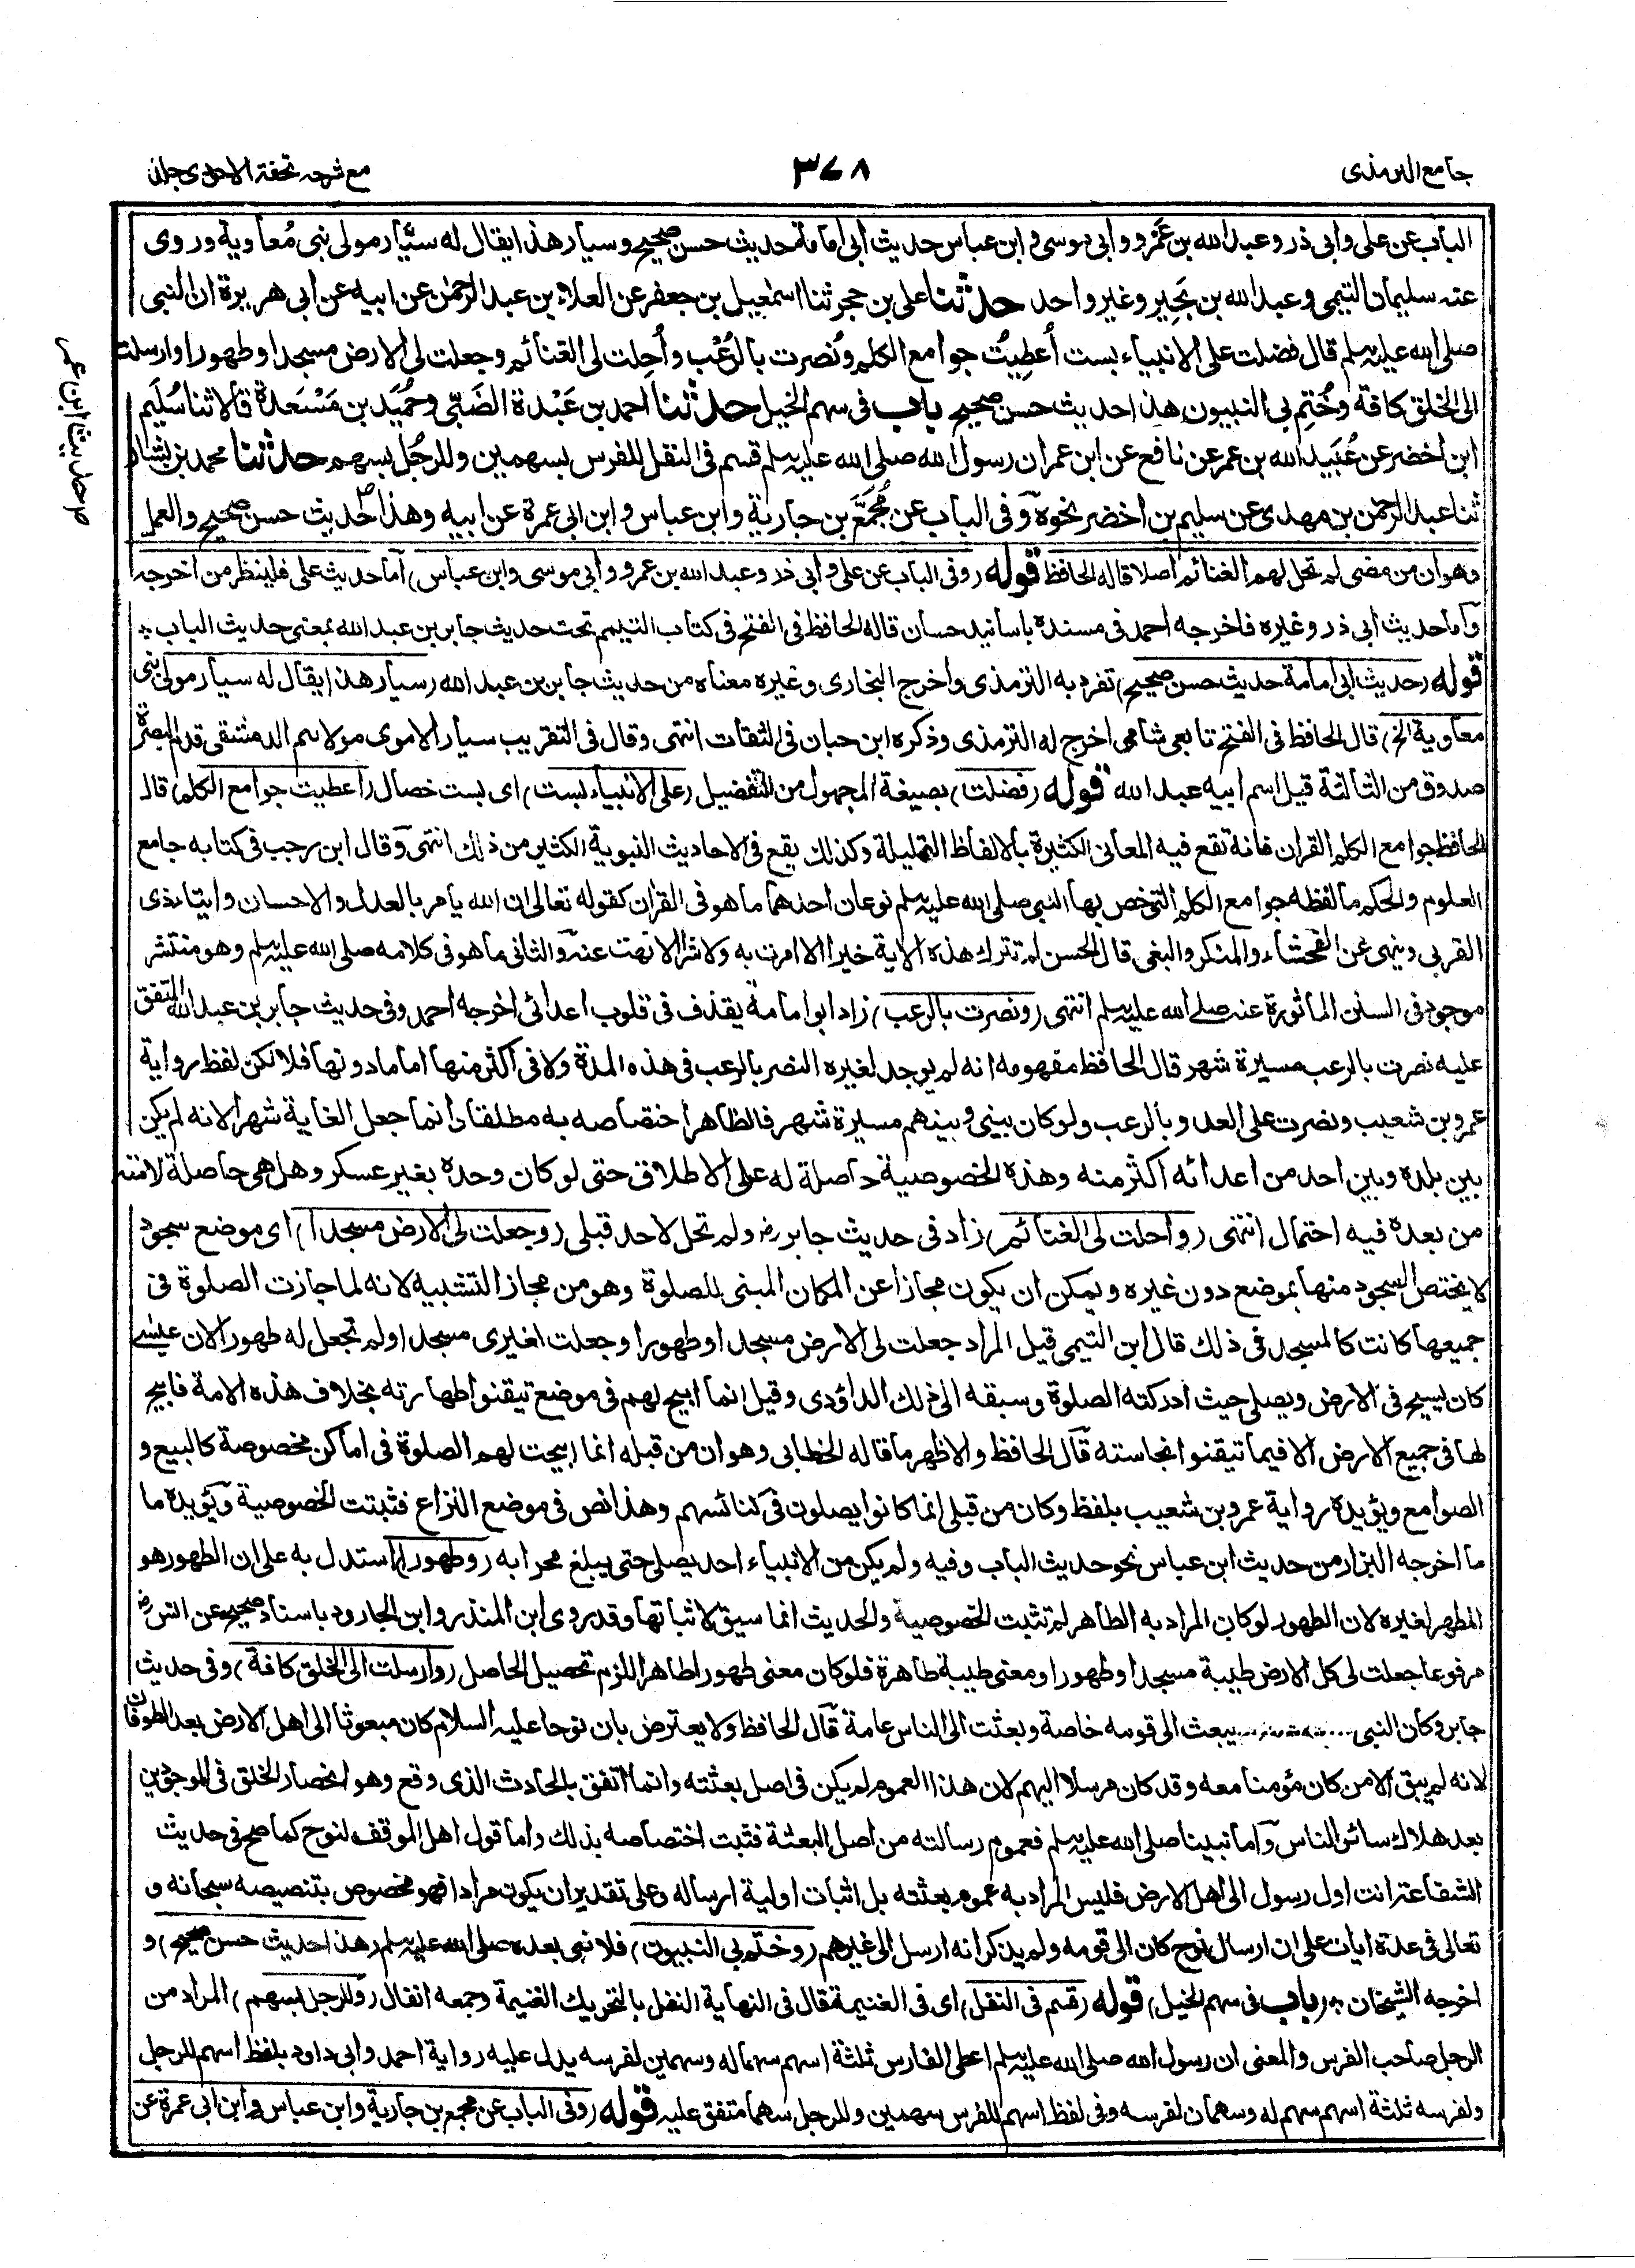 جامع الترمذى
٣٦٨
مع شرحه تحفة الاحوذى جلد
الباب عن على وابى ذر وعبد الله بن عَمْرٍو وابى موسى وابن عباس حديث ابى امامة حديث حسن صحيح وسيار هذا يقال له سيّار مولى بنى مُعاوية وروى
عنه سليمان التيمى وعبد الله بن بَحِير وغير واحد حدثنا على بن حجر ثنا اسمٰعيل بن جعفر عن العلاء بن عبد الرحمٰن عن ابيه عن ابى هريرة ان النبى
صلى الله عليه وسلم قال فضلت على الانبياء بست اُعطِيتُ جوامع الكلم ونُصرت بالرُعْب واُحِلت لى الغنائم وجعلت لى الارض مسجدا وطهورا وارسلت
الى الخلق كافة وخُتِم بى النبيون هذا حديث حسن صحيح باب فى سهم الخيل حدثنا احمد بن عَبْدة الضَبّى وحُمَيد بن مَسْعَدة قالا ثنا سُلَيم
ابن اخضر عن عُبَيد الله بن عمر عن نافع عن ابن عمر ان رسول الله صلى الله عليه وسلم قسم فى النفل للفرس بسهمين وللرجُل بسهم حدثنا محمد بن بشار
ثنا عبد الرحمن بن مهدى عن سليم بن اخضر نحوه وفى الباب عن مُجَمَّع بن جارية وابن عباس وابن ابى عمرة عن ابيه وهذا حديث حسن صحيح والعمل
صر حديث ابن عمر
وهو ان من مضى لم تحل لهم الغنائم اصلا قاله الحافظ قوله (وفى الباب عن على وابى ذر وعبد الله بن عمرو وابى موسى وابن عباس) اما حديث على فلينظر من اخرجه
واما حديث ابى ذر وغيره فاخرجه احمد فى مسنده باسانيد حسان قاله الحافظ فى الفتح فى كتاب التيمم تحت حديث جابر بن عبد الله بمعنى حديث الباب
قوله (حديث ابى امامة حديث حسن صحيح) تفرد به الترمذى واخرج البخارى وغيره معناه من حديث جابر بن عبد الله (سيار هذا يقال له سيار مولى بنى
معاوية الخ) قال الحافظ فى الفتح تابعى شامى اخرج له الترمذى وذكره ابن حبان فى الثقات انتهى وقال فى التقريب سيار الاموى مولاهم الدمشقى قدم البصرة
صدوق من الثالثة قيل اسم ابيه عبد الله قوله (فضلت) بصيغة المجهول من التفضيل (على الانبياء بست) اى بست خصال (اعطيت جوامع الكلم) قال
الحافظ جوامع الكلم القران فانه تقع فيه المعانى الكثيرة بالالفاظ القليلة وكذلك يقع فى الاحاديث النبوية الكثير من ذلك انتهى وقال ابن رجب فى كتابه جامع
العلوم والحكم ما لفظه جوامع الكلم التى خص بها النبى صلى الله عليه وسلم نوعان احدهما ما هو فى القران كقوله تعالى ان الله يامر بالعدل والاحسان وايتا ئذى
القربى وينهى عن الفحشاء والمنكر والبغى قال الحسن لم تترك هذه الاية خيرا الا امرت به ولا شرا الا نهت عنه والثانى ما هو فى كلامه صلى الله عليه وسلم وهو منتشر
موجود فى السنن الماثورة عنه صلى الله عليه وسلم انتهى (ونصرت بالرعب) زاد ابو امامة يقذف فى قلوب اعدائى اخرجه احمد وفى حديث جابر بن عبد الله المتفق
عليه نصرت بالرعب مسيرة شهر قال الحافظ مفهومه انه لم يوجد لغيره النصر بالرعب فى هذه المدة ولا فى اكثر منها اما ما دونها فلا لكن لفظ رواية
عمرو بن شعيب ونصرت على العدو بالرعب ولو كان بينى وبينهم مسيرة شهر فالظاهر اختصاصه به مطلقا وانما جعل الغاية شهرا لانه لم يكن
بين بلده وبين احد من اعدائه اكثر منه وهذه الخصوصية حاصلة له على الاطلاق حتى لو كان وحده بغير عسكر وهل هى حاصلة لامته
من بعده فيه احتمال انتهى (واحلت لى الغنائم) زاد فى حديث جابر رض ولم تحل لاحد قبلى (وجعلت لى الارض مسجدا) اى موضع سجود
لا يختص السجود منها بموضع دون غيره ويمكن ان يكون مجازا عن المكان المبنى للصلوة وهو من مجاز التشبيه لانه لما جازت الصلوة فى
جميعها كانت كالمسجد فى ذلك قال ابن التيمى قيل المراد جعلت لى الارض مسجدا وطهورا وجعلت لغيرى مسجدا ولم تجعل له طهورا لان عيسى
كان يسيح فى الارض ويصلى حيث ادركته الصلوة وسبقه الى ذلك الداؤدى وقيل انما ابيح لهم فى موضع تيقنوا طهارته بخلاف هذه الامة فابيح
لها فى جميع الارض الا فيما تيقنوا نجاسته قال الحافظ والاظهر ما قاله الخطابى وهو ان من قبله انما ابيحت لهم الصلوة فى اماكن مخصوصة كالبيع و
الصوامع ويؤيده رواية عمرو بن شعيب بلفظ وكان من قبلى انما كانوا يصلون فى كنائسهم وهذا نص فى موضع النزاع فثبتت الخصوصية ويؤيده ما
ما اخرجه البزار من حديث ابن عباس نحو حديث الباب وفيه ولم يكن من الانبياء احد يصلى حتى يبلغ محرابه (وطهورا) استدل به على ان الطهور هو
المطهر لغيره لان الطهور لو كان المراد به الطاهر لم تثبت الخصوصية والحديث انما سيق لاثباتها وقد روى ابن المنذر وابن الجارود باسناد صحيح عن انس رض
مرفوعا جعلت لى كل الارض طيبة مسجدا وطهورا ومعنى طيبة طاهرة فلو كان معنى طهورا طاهرا للزم تحصيل الحاصل (وارسلت الى الخلق كافة) وفى حديث
جابر وكان النبى ........ يبعث الى قومه خاصة وبعثت الى الناس عامة قال الحافظ ولا يعترض بان نوحا عليه السلام كان مبعوثا الى اهل الارض بعد الطوفان
لانه لم يبق الا من كان مؤمنا معه وقد كان مرسلا اليهم لان هذا العموم لم يكن فى اصل بعثته وانما اتفق بالحادث الذى وقع وهو انحصار الخلق فى الموجودين
بعد هلاك سائر الناس واما نبينا صلى الله عليه وسلم فعموم رسالته من اصل البعثة فثبت اختصاصه بذلك واما قول اهل الموقف لنوح كما صح فى حديث
الشفاعة انت اول رسول الى اهل الارض فليس المراد به عموم بعثته بل اثبات اولية ارساله وعلى تقدير ان يكون مرادا فهو مخصوص بتنصيصه سبحانه و
تعالى فى عدة ايات على ان ارسال نوح كان الى قومه ولم يذكر انه ارسل الى غيرهم (وختم بى النبيون) فلا نبى بعده صلى الله عليه وسلم (هذا حديث حسن صحيح) و
اخرجه الشيخان (باب فى سهم الخيل) قوله (قسم فى النفل) اى فى الغنيمة قال فى النهاية النفل بالتحريك الغنيمة وجمعه انفال (وللرجل بسهم) المراد من
الرجل صاحب الفرس والمعنى ان رسول الله صلى الله عليه وسلم اعطى الفارس ثلثة اسهم سهما له وسهمين لفرسه يدل عليه رواية احمد وابى داود بلفظ اسهم للرجل
ولفرسه ثلثة اسهم سهم له وسهمان لفرسه وفى لفظ اسهم للفرس سهمين وللرجل سهما متفق عليه قوله (وفى الباب عن مجمع بن جارية وابن عباس وابن ابى عمرة عن